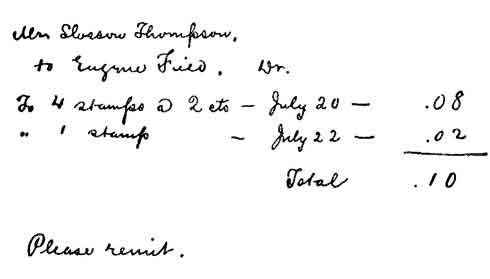 Mr Slosson Thompson,
to Eugene Field, Dr.
To 4 stamps @ 2 cts – July 20 – .08
" 1 stamp – July 22 – .02
Total .10
Please remit.